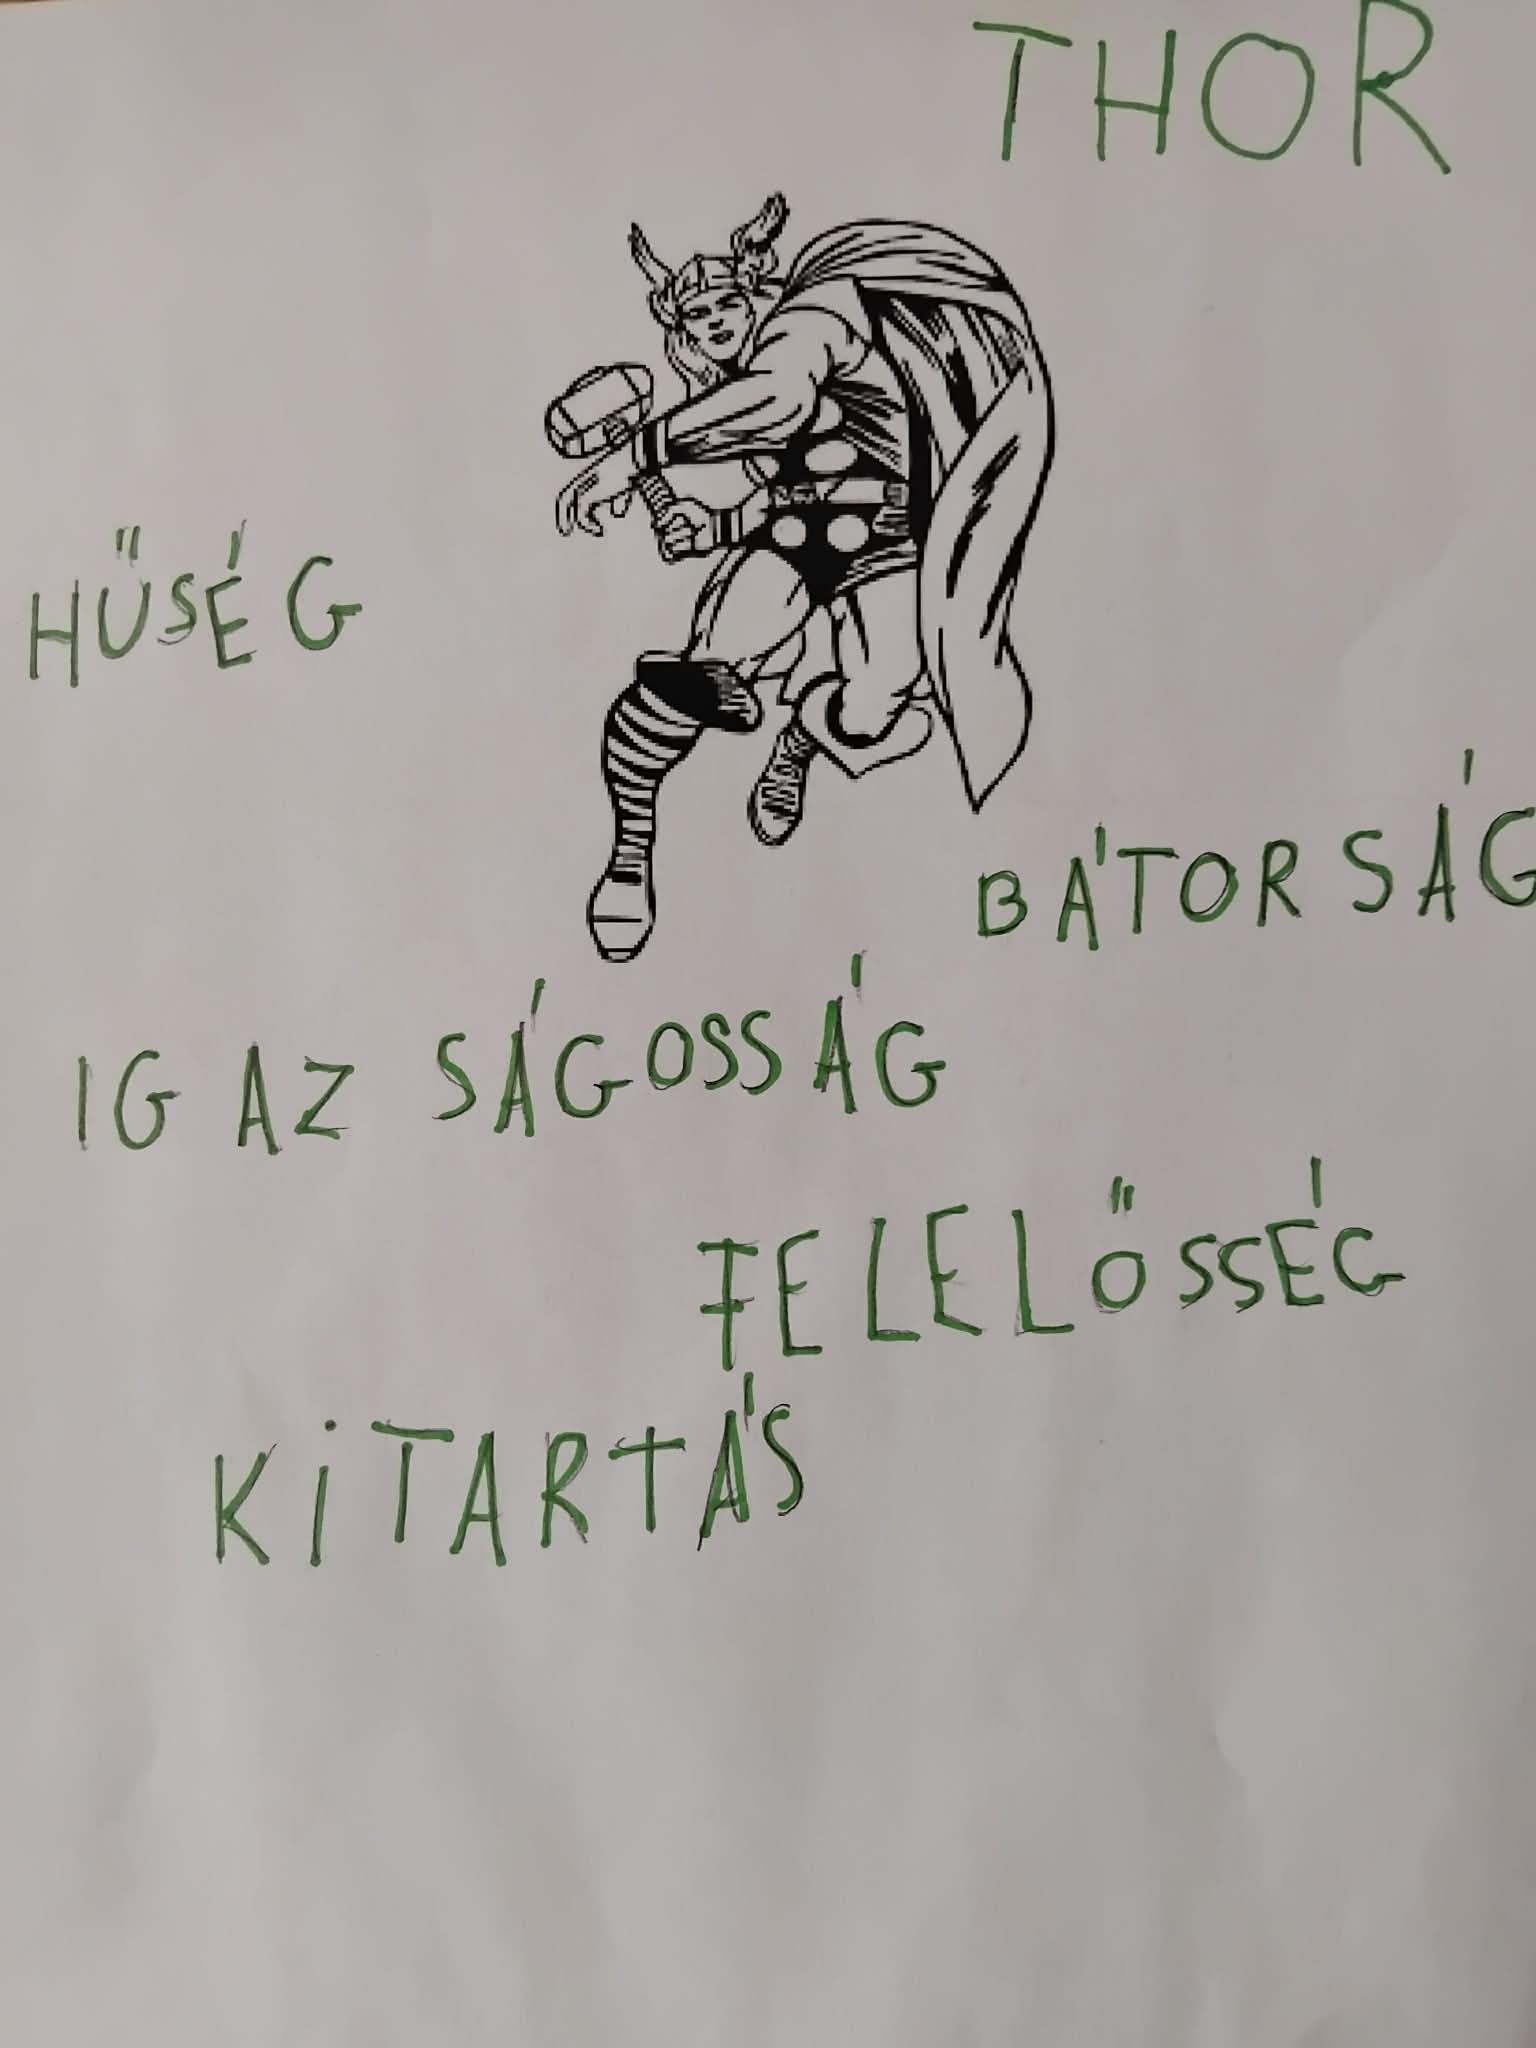 THOR
HŰSÉG
BÁTORSÁG
IGAZSÁGOSSÁG
FELELŐSSÉG
KiTARTÁS